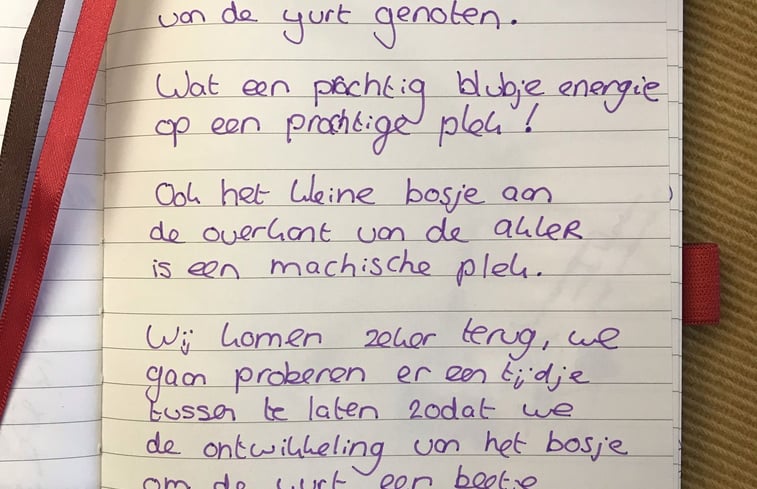 van de yurt genoten.
Wat een prachtig blubje energie
op een prachtige plek!
Ook het kleine bosje aan
de overkant van de akker
is een machische plek.
Wij komen zeker terug, we
gaan proberen er een tijdje
tussen te laten zodat we
de ontwikkeling van het bosje
om de yurt een beetje